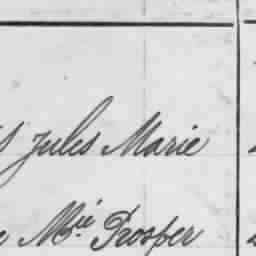 Jules Marie
Mie Prosper